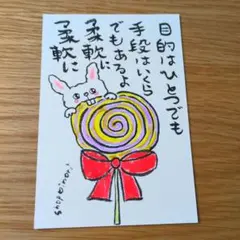 目的はひとつでも
手段はいくら
でもあるよ
柔軟に
柔軟に